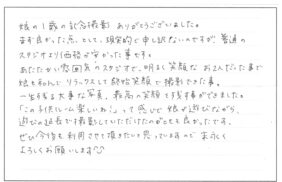 娘の1歳の記念撮影 ありがとうございました。
まず良かった点、として、現実的で申し訳ないのですが、普通の
スタジオより価格が安かった事です。
あたたかい雰囲気のスタジオで、明るく笑顔な お2人だった事で
娘も和んで リラックスして 終始笑顔で撮影できた事。
一生残る大事な写真、最高の笑顔で残す事ができました。
「この子供さん楽しいね！」って感じで 娘が遊びながら、
遊びの延長で撮影していただけたのがとても良かったです。
ぜひ今後も利用させて頂きたいと思っていますので 末永く
よろしくお願いします